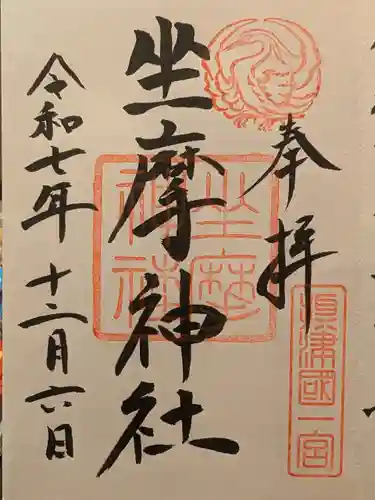 奉拝
攝津國一宮
坐摩神社
坐摩神社
令和七年十二月六日